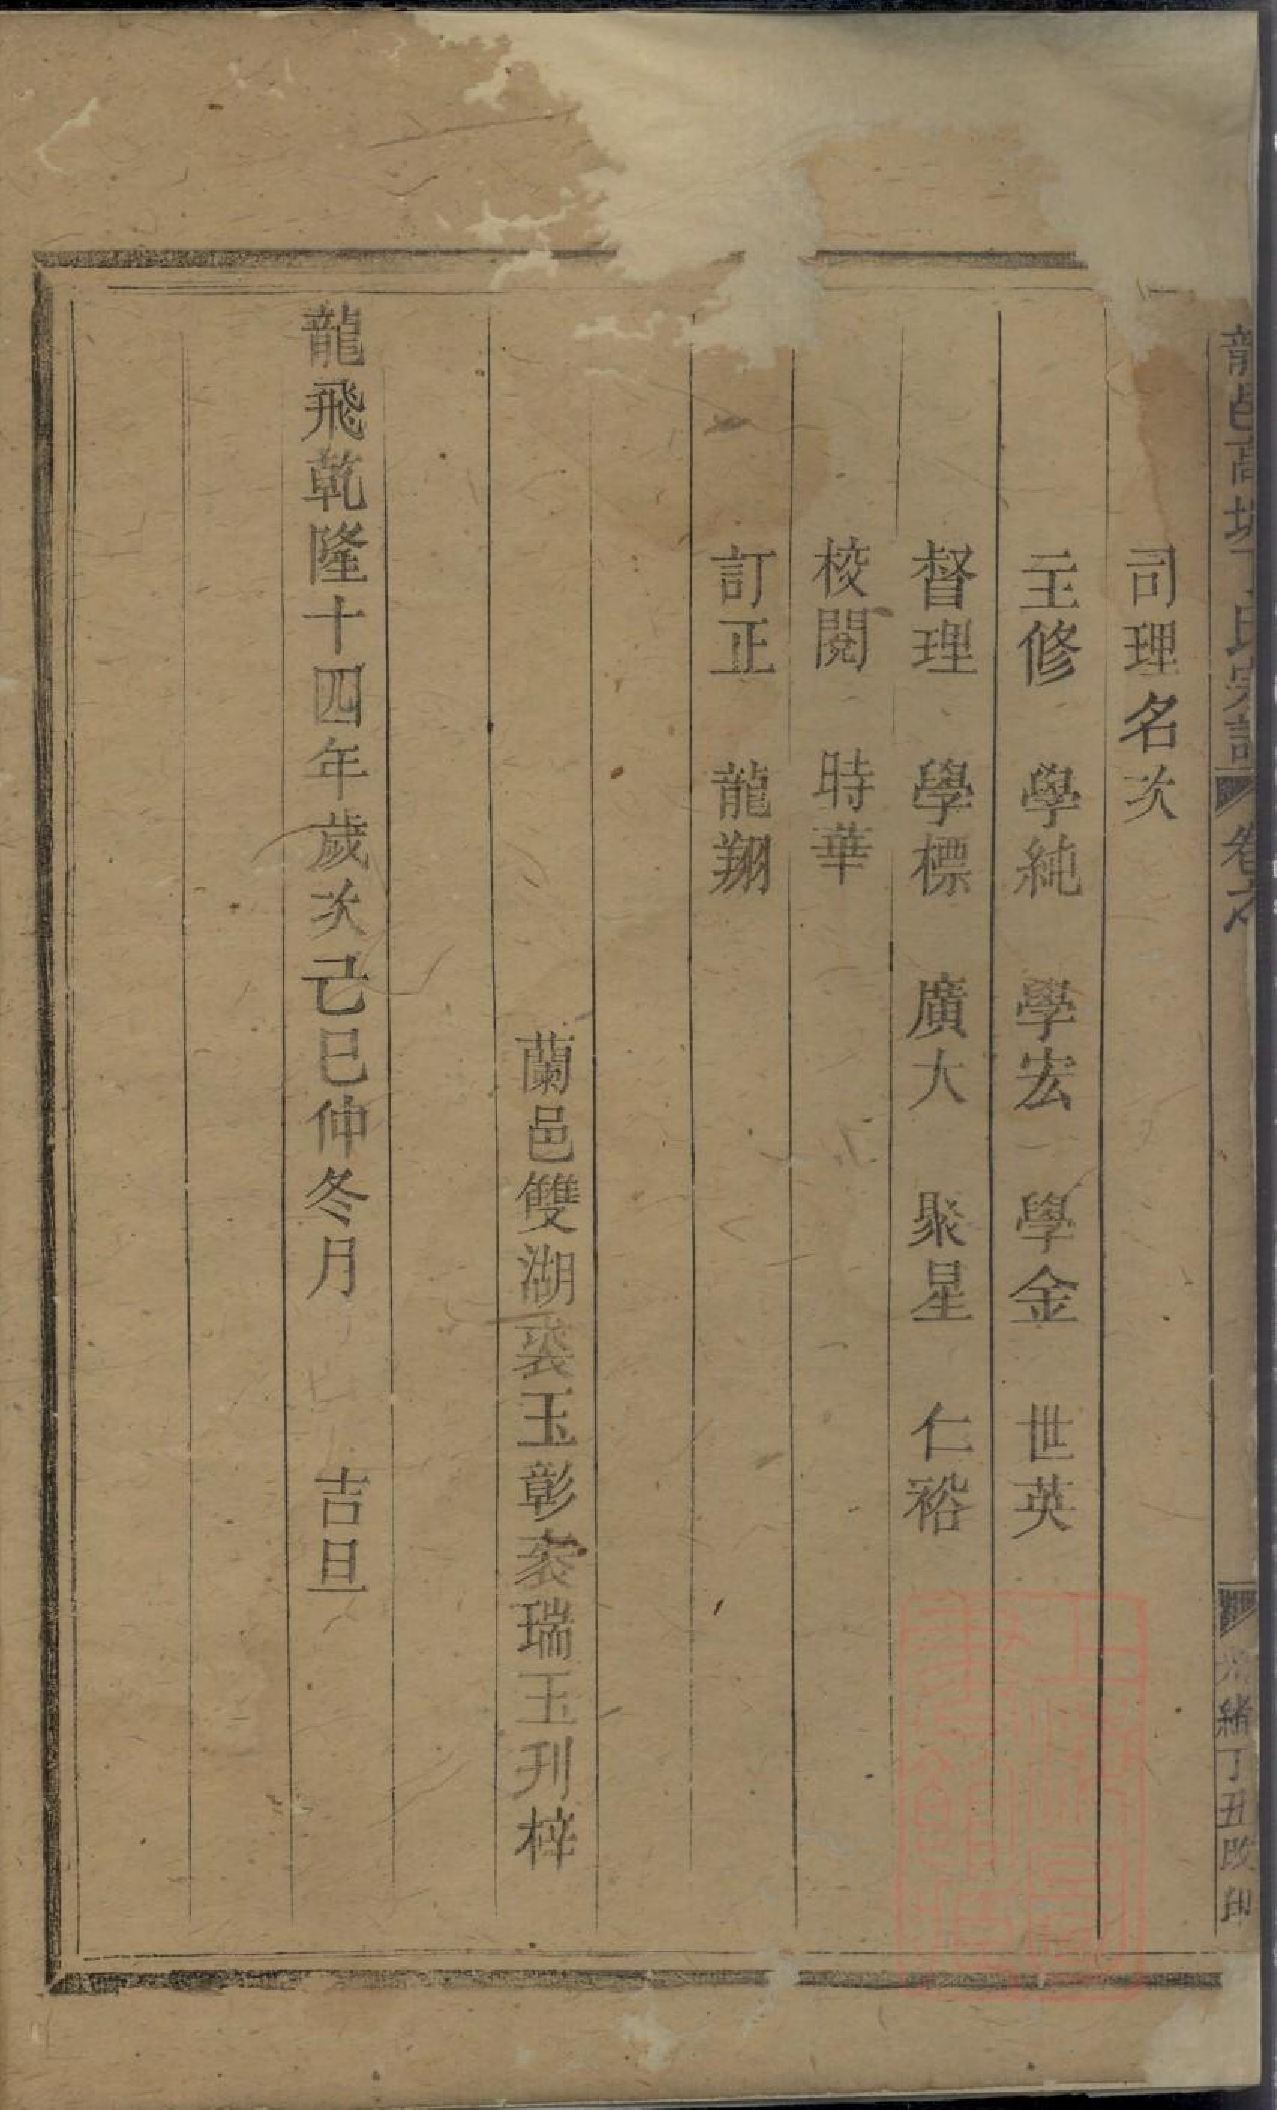 龍邑高塘丁氏宗譜 卷之
光緒丁丑改印
司理名次
主修 學純 學宏 學金 世英
督理 學標 廣大 聚星 仁裕
校閱 時華
訂正 龍翔
蘭邑雙湖裘玉彰裘瑞玉刋梓
龍飛乾隆十四年歲次己巳仲冬月 吉旦
上海圖書館藏